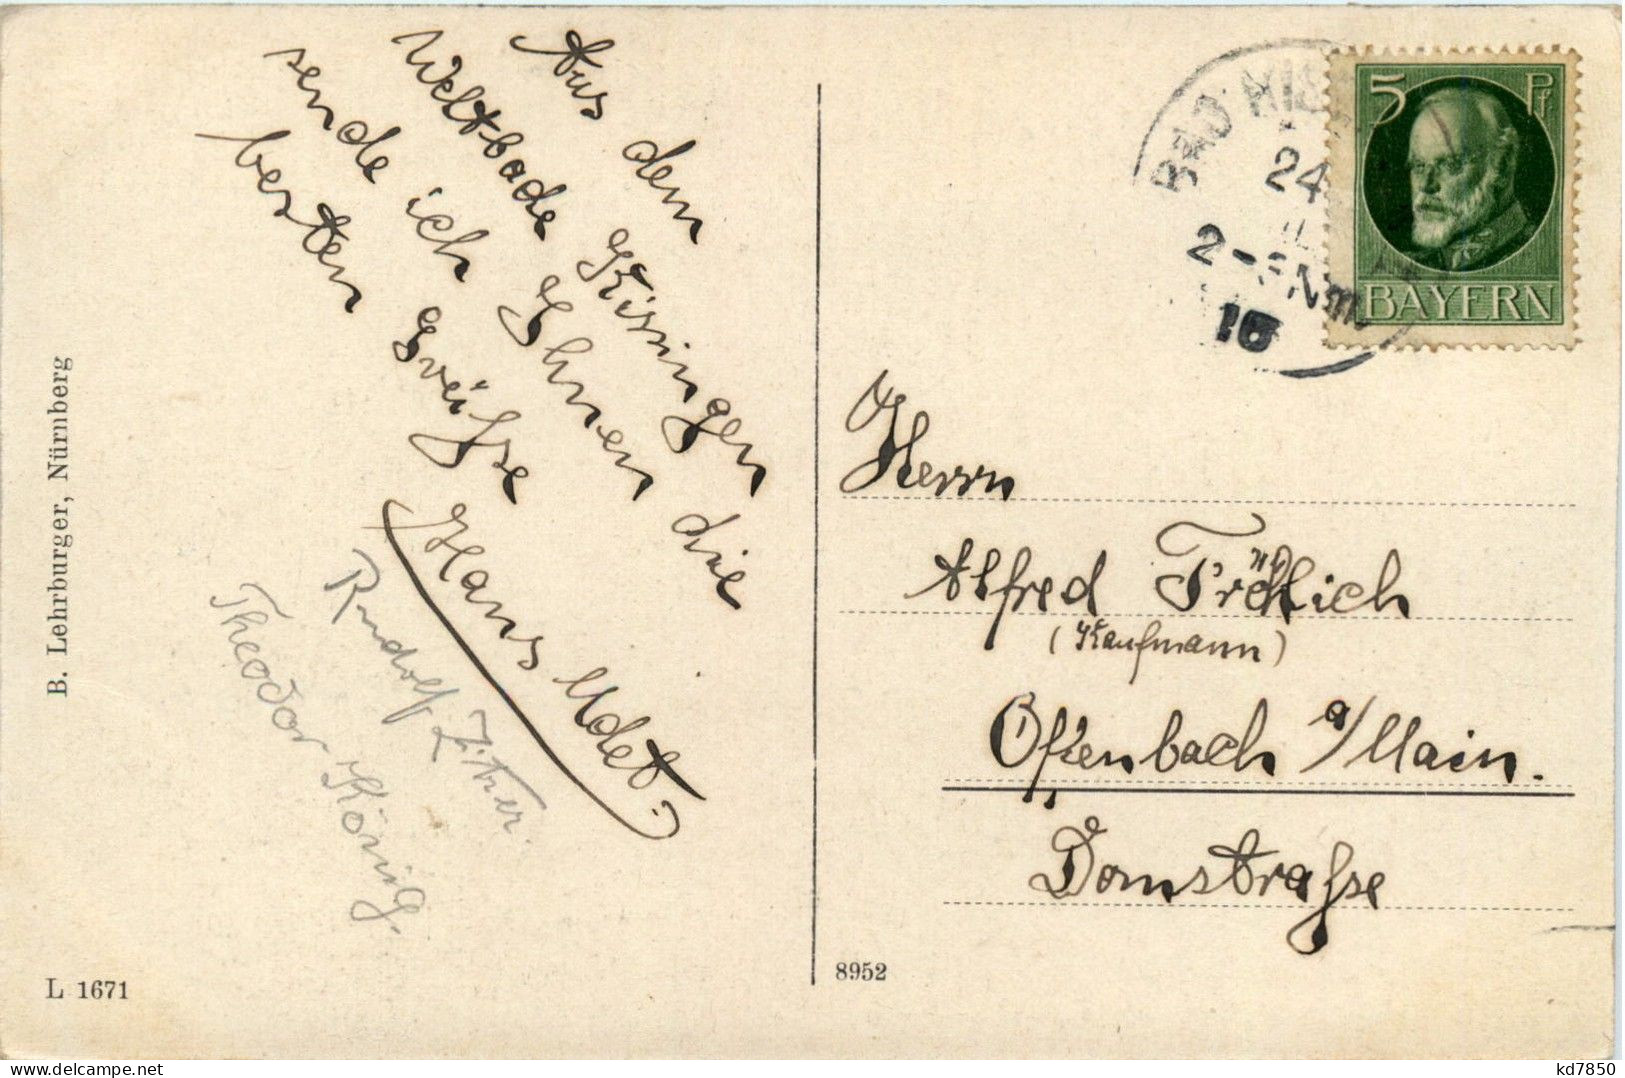 Aus dem
Weltbade Kissingen
sende ich Ihnen die
besten Grüße
Hans Udet.
Rudolf Zitzer
Theodor König.
B. Lehrburger, Nürnberg
L 1671
8952
BAD KISS
24
2-3 Nm
16
5 Pf
BAYERN
Herrn
Alfred Fröhlich
(Kaufmann)
Offenbach a/Main.
Domstraße
delcampe.net
kd7850